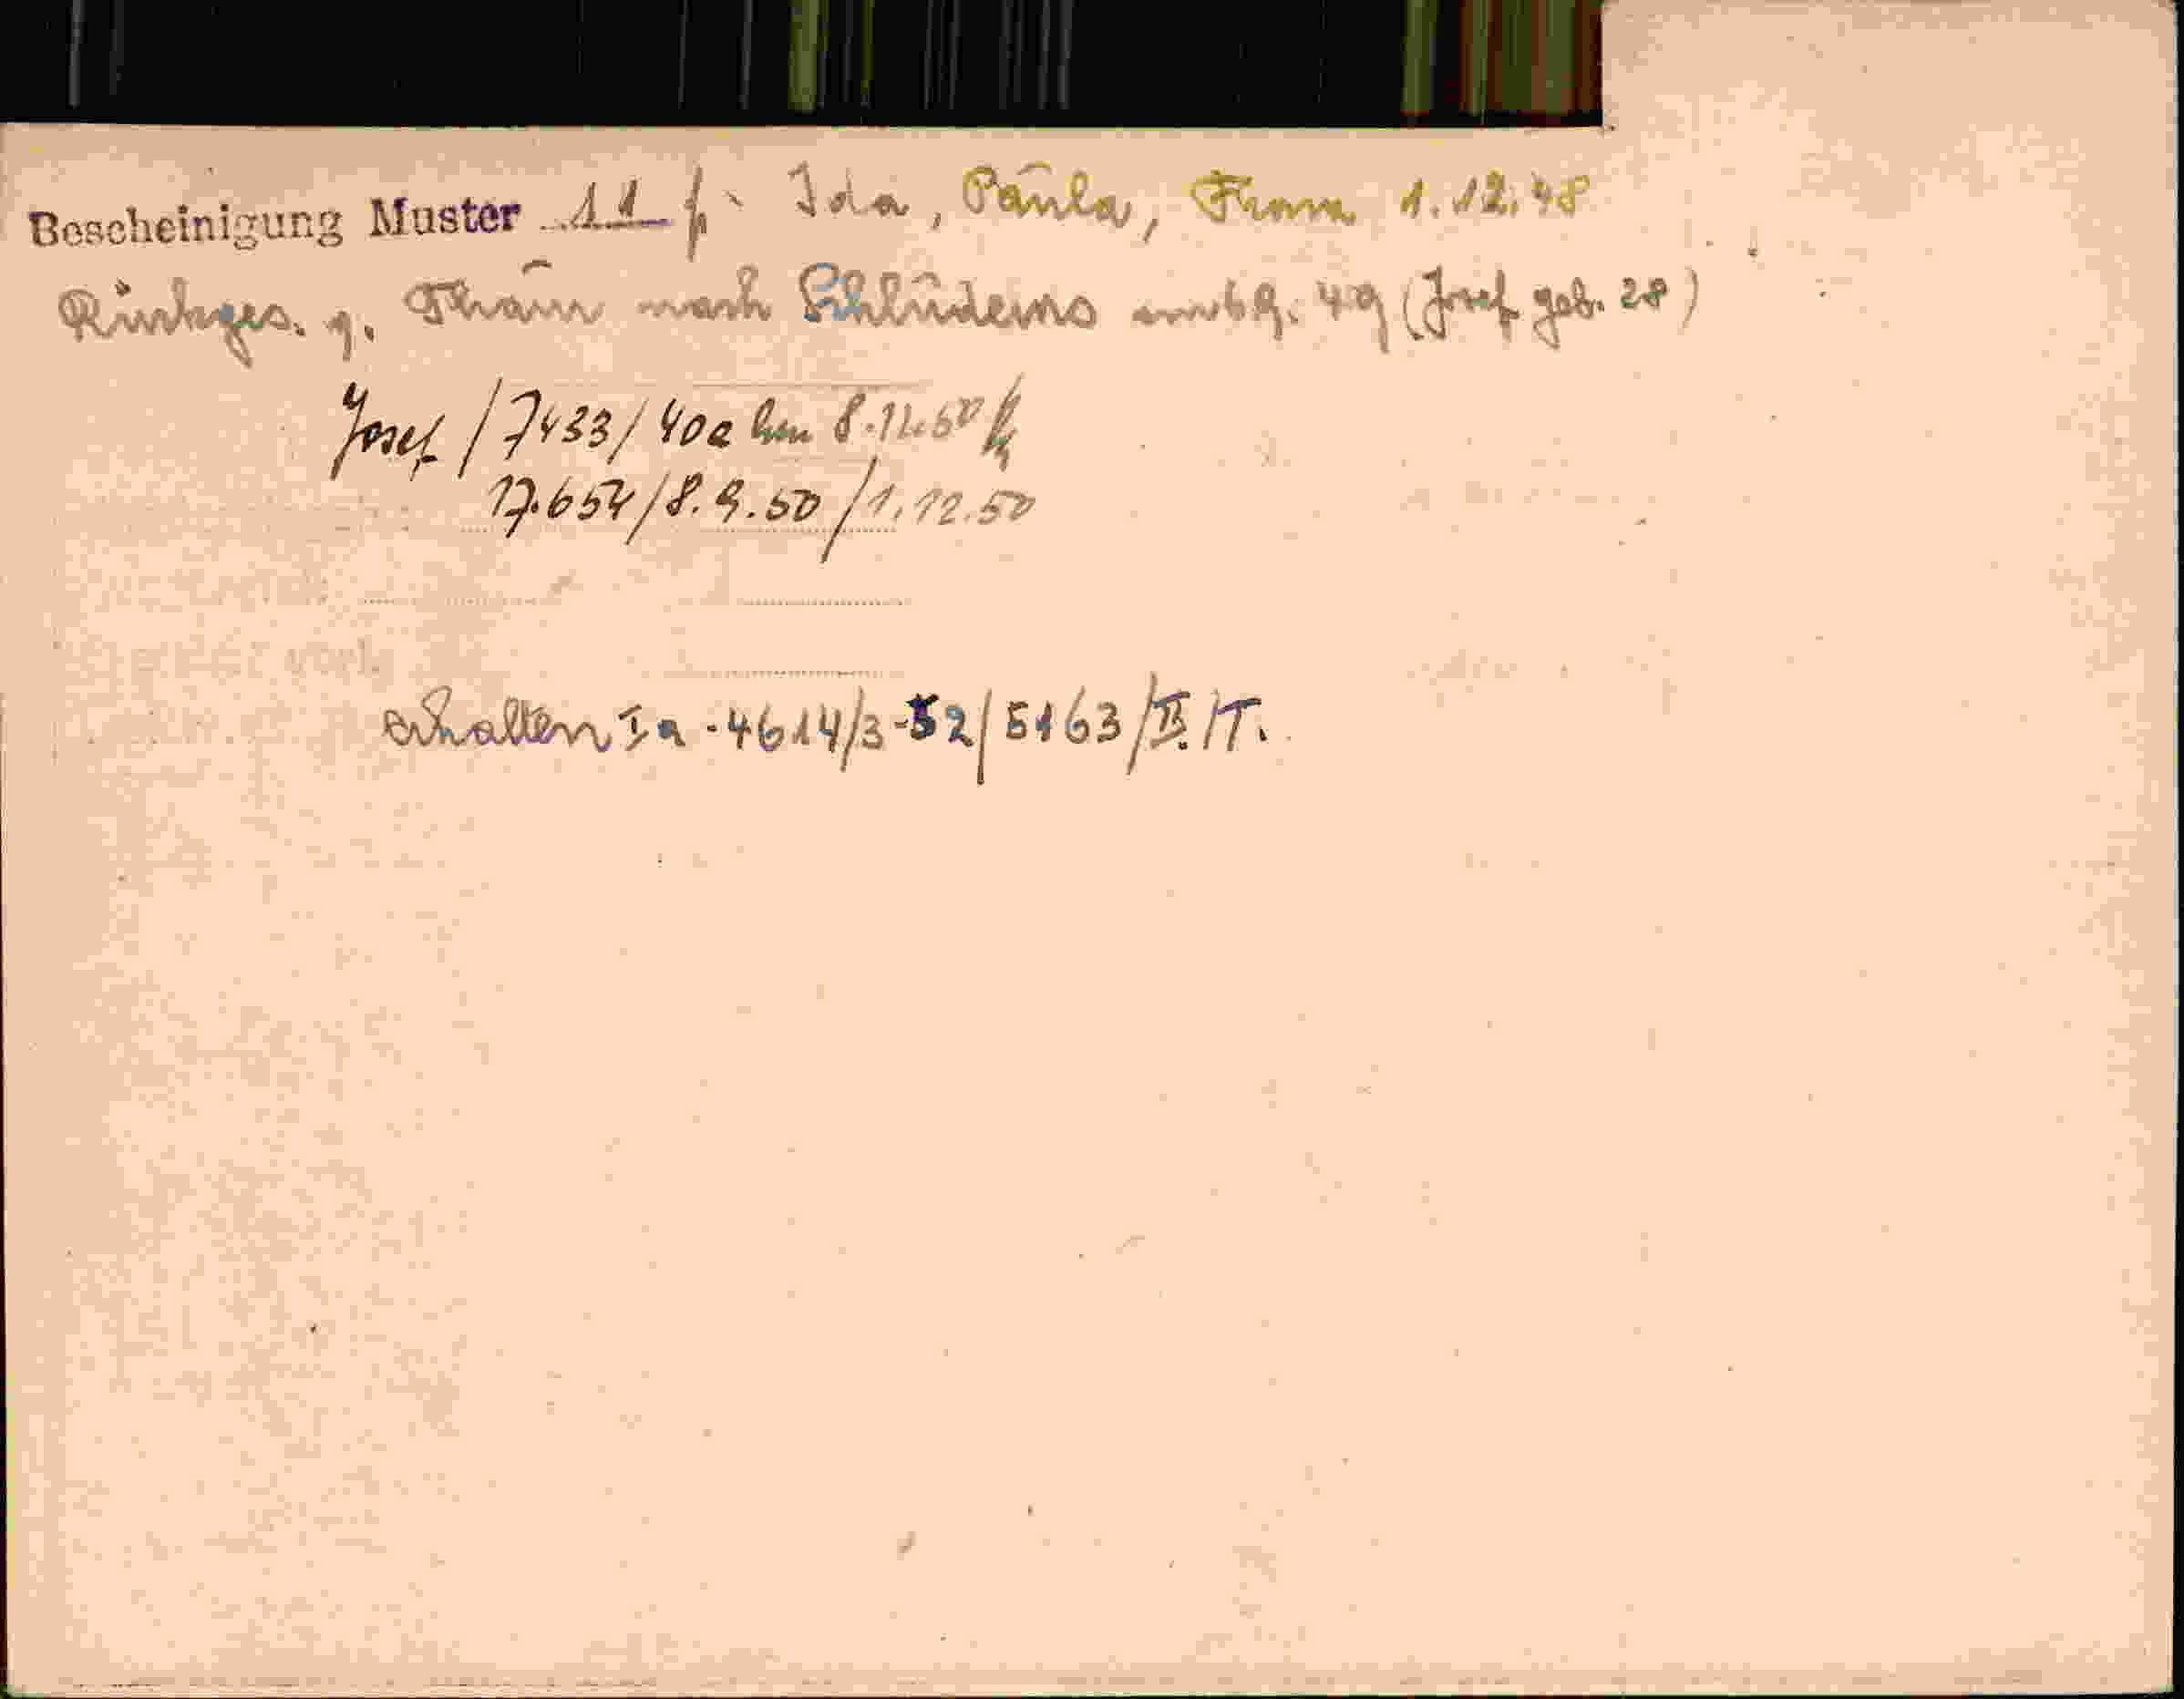 Bescheinigung Muster 11 f. Ida, Paula, Franz 1.12.48
Rückges. g. nach Schluderns 49 (Josef geb. 28)
Josef / 7433 / 40a 8.12.50
17.654/8.9.50/1.12.50
erhalten Ia - 4614/3-52/5163/II./T.
vorl.